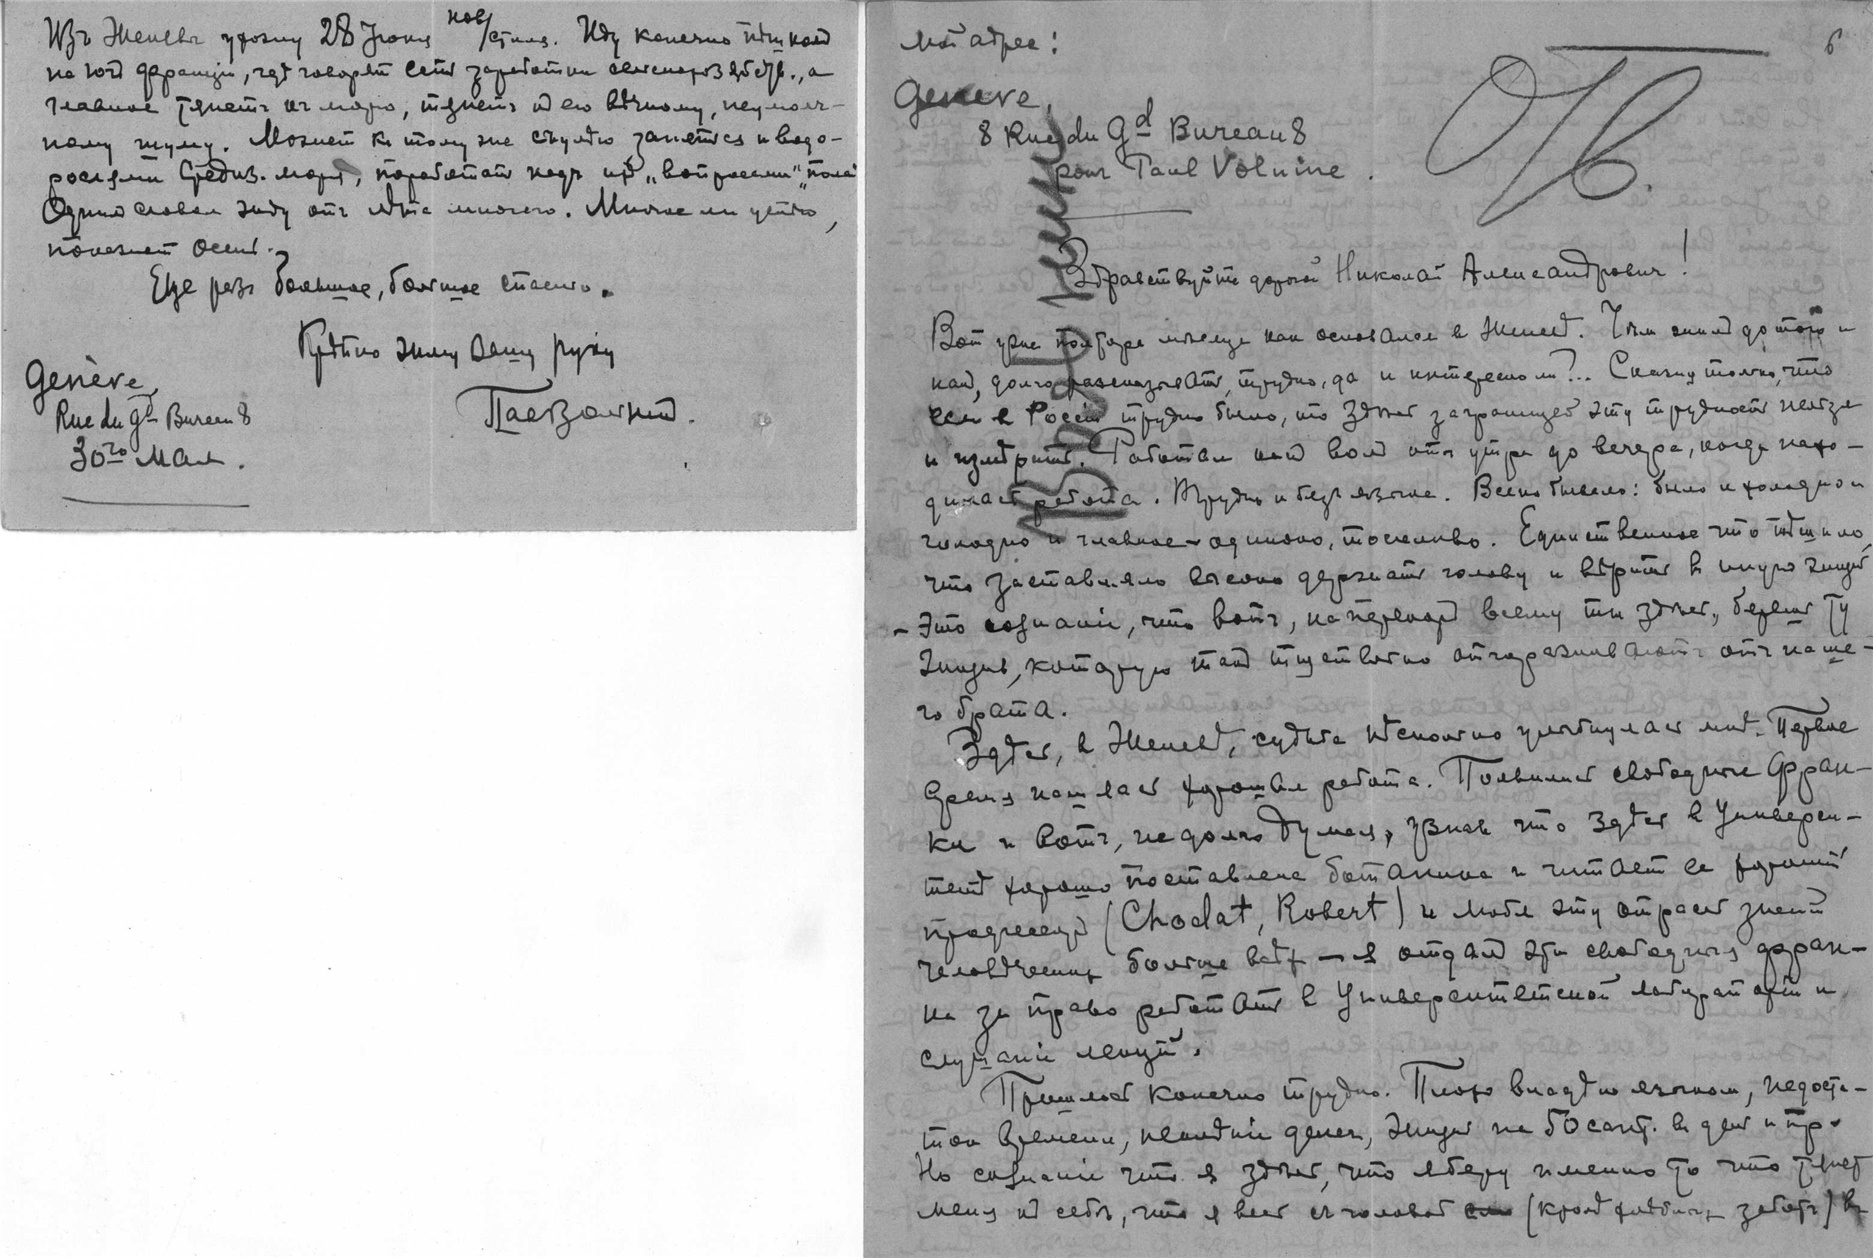 Изъ Женевы ухожу 28 Іюня нов/стиля. Иду конечно пѣшкомъ
на югъ Франціи, гдѣ говорятъ есть заработки, а
главное тянетъ къ морю, тянетъ къ его вѣчному, неумолч-
ному шуму. Можетъ къ тому же случиться заняться и водо-
рослями Средиз. моря, поработать надъ ихъ „вопросами“ „пола“
Одним словом жду отъ лѣта многого. Многое ли успѣю,
покажетъ осень.
Еще разъ большое, большое спасибо.
Крѣпко жму Вашу руку
Genève,
Rue du Gd Bureau 8
30го Мая.
мой адрес:
Genève,
8 Rue du Gd Bureau 8
pour Paul Volnine.
6
Отв.
Здравствуйте дорогой Николай Александрович!
Вот уже полтора месяца как основался в Женевѣ. Чѣм жил до того и
как, долго рассказывать, трудно, да и интересно ли?... Скажу только, что
если в Россіи трудно было, то здѣсь заграницей эту трудность нельзя
и измѣрить. Работал как вол отъ утра до вечера, когда нахо-
дилась работа. Трудно и безъ языка. Всего бывало: было и холодно и
голодно и главное – одиноко, тоскливо. Единственное что тѣшило,
что заставляло высоко держать голову и вѣрить в иную жизнь
– это сознаніе, что вотъ, наперекор всему ты здѣсь, берешь ту
жизнь, которую так тщательно отгораживаютъ отъ наше-
го брата.
Здѣсь, в Женевѣ, судьба нѣсколько улыбнулась мнѣ. Первое
время нашлась хорошая работа. Появились свободные фран-
ки и вотъ, не долго думая, узнав что здѣсь в Универси-
тетѣ хорошо поставлена ботаника и читает ее хороший
профессор (Chodat, Robert) и любя эту отрасль знаній
человѣческих больше всѣх – я отдал эти свободные фран-
ки за право работать в Университетской лабораторіи и
слушаніе лекцій.
Пришлось конечно трудно. Плохо владѣю языком, недоста-
ток времени, неимѣніе денег, жизнь на 50 сант. въ день и пр.
Но сознаніе что я здѣсь, что я беру именно то что тянет
меня къ себѣ, что я весь съ головой (кромѣ заботъ) въ